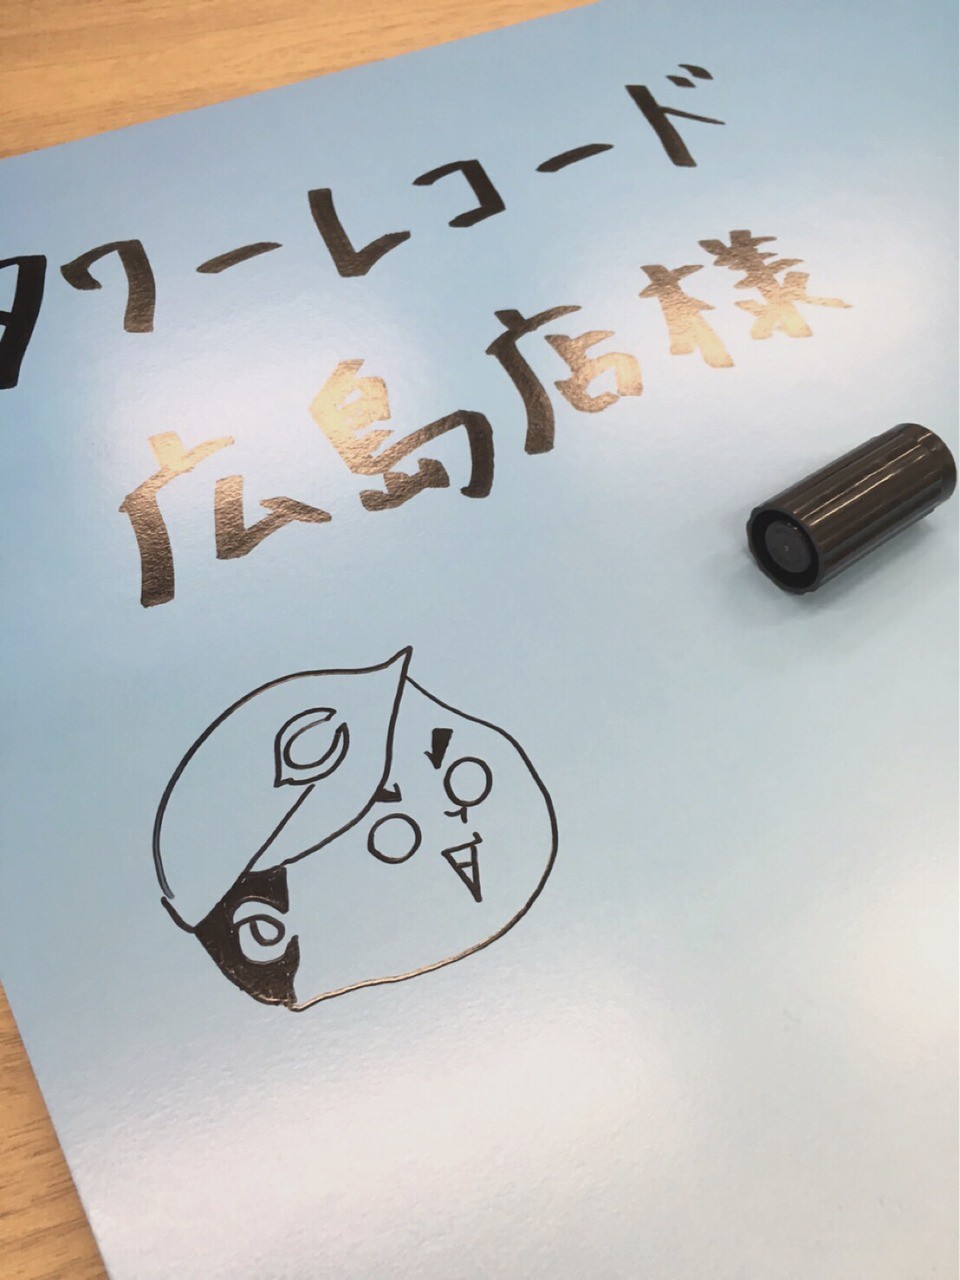 タワーレコード
広島店様